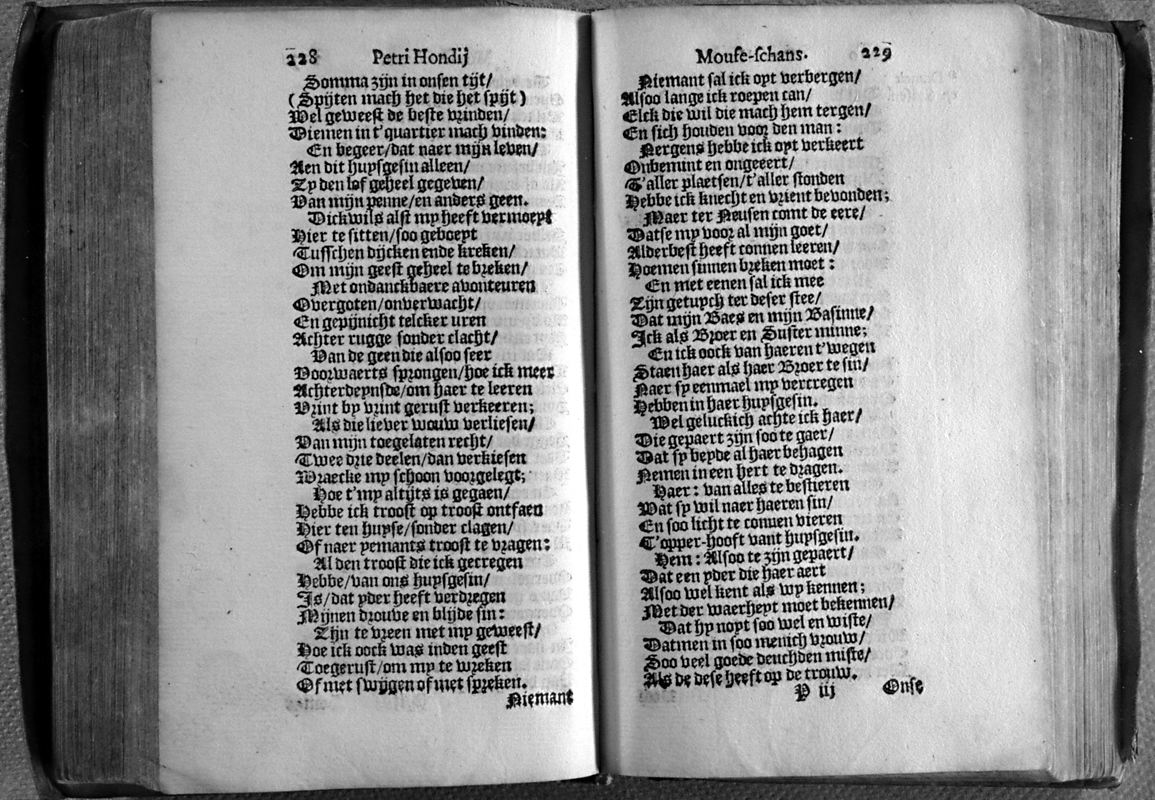 228 Petri Hondij
Somma zijn in onsen tijt/
(Spijten mach het die het spijt)
Wel geweest de beste vrinden/
Diemen in t'quartier mach vinden:
En begeer/dat naer mijn leven/
Aen dit huysgesin alleen/
Zy den lof geheel gegeven/
Van mijn penne/en anders geen.
Dickwils alst my heeft vermoeyt
Hier te sitten/soo geboeyt
Tusschen dijcken ende kreken/
Om mijn geest geheel te breken/
Met ondanckbaere avonteuren
Overgoten/onverwacht/
En gepijnicht telcker uren
Achter rugge sonder clacht/
Van de geen die alsoo seer
Voorwaerts sprongen/hoe ick meer
Achterdeynsde/om haer te leeren
Vrint by vrint gerust verkeeren;
Als die liever wouw verliesen/
Van mijn toegelaten recht/
Twee drie deelen/dan verkiesen
Wraecke my schoon voorgelegt;
Hoe t'my altijts is gegaen/
Hebbe ick troost op troost ontfaen
Hier ten huyse/sonder clagen/
Of naer yemants troost te vragen:
Al den troost die ick gecregen
Hebbe/van ons huysgesin/
Is/dat yder heeft verdregen
Mijnen drouve en blijde sin:
Zijn te vreen met my geweest/
Hoe ick oock was inden geest
Toegerust/om my te wreken
Of met swijgen of met spreken.
Niemant
Mouse-schans. 229
Niemant sal ick oyt verbergen/
Alsoo lange ick roepen can/
Elck die wil die mach hem tergen/
En sich houden voor den man:
Nergens hebbe ick oyt verkeert
Onbemint en ongeeert/
T'aller plaetsen/t'aller stonden
Hebbe ick knecht en vrient bevonden;
Maer ter Neusen comt de eere/
Datse my voor al mijn goet/
Alderbest heeft connen leeren/
Hoemen sinnen breken moet:
En met eenen sal ick mee
Zijn getuych ter deser stee/
Dat mijn Baes en mijn Basinne/
Ick als Broer en Suster minne;
En ick oock van haeren t'wegen
Staen haer als haer Broer te sin/
Naer sy eenmael my vertregen
Hebben in haer huysgesin.
Wel geluckich achte ick haer/
Die gepaert zijn soo te gaer/
Dat sy beyde al haer behagen
Nemen in een hert te dragen.
Haer: van alles te bestieren
Wat sy wil naer haeren sin/
En soo licht te connen vieren
T'opper-hooft vant huysgesin.
Hem: Alsoo te zijn gepaert/
Dat een yder die haer aert
Alsoo wel kent als wy kennen;
Met der waerheyt moet bekennen/
Dat hy noyt soo wel en wiste/
Datmen in soo menich vrouw/
Soo veel goede deuchden miste/
Als de dese heeft op de trouw.
P iij Onse